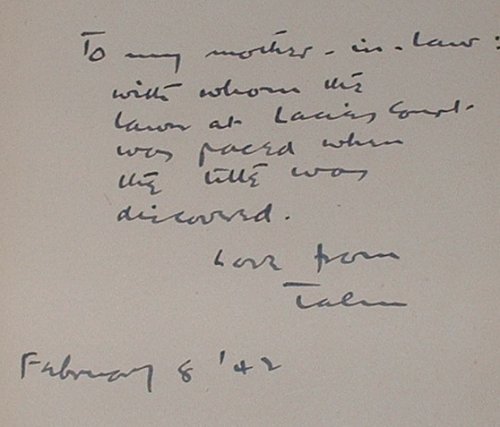 To my mother-in-law:
with whom the
lawn at Lacies Court
was paced when
the title was
discovered.
Love from
February 8 '42